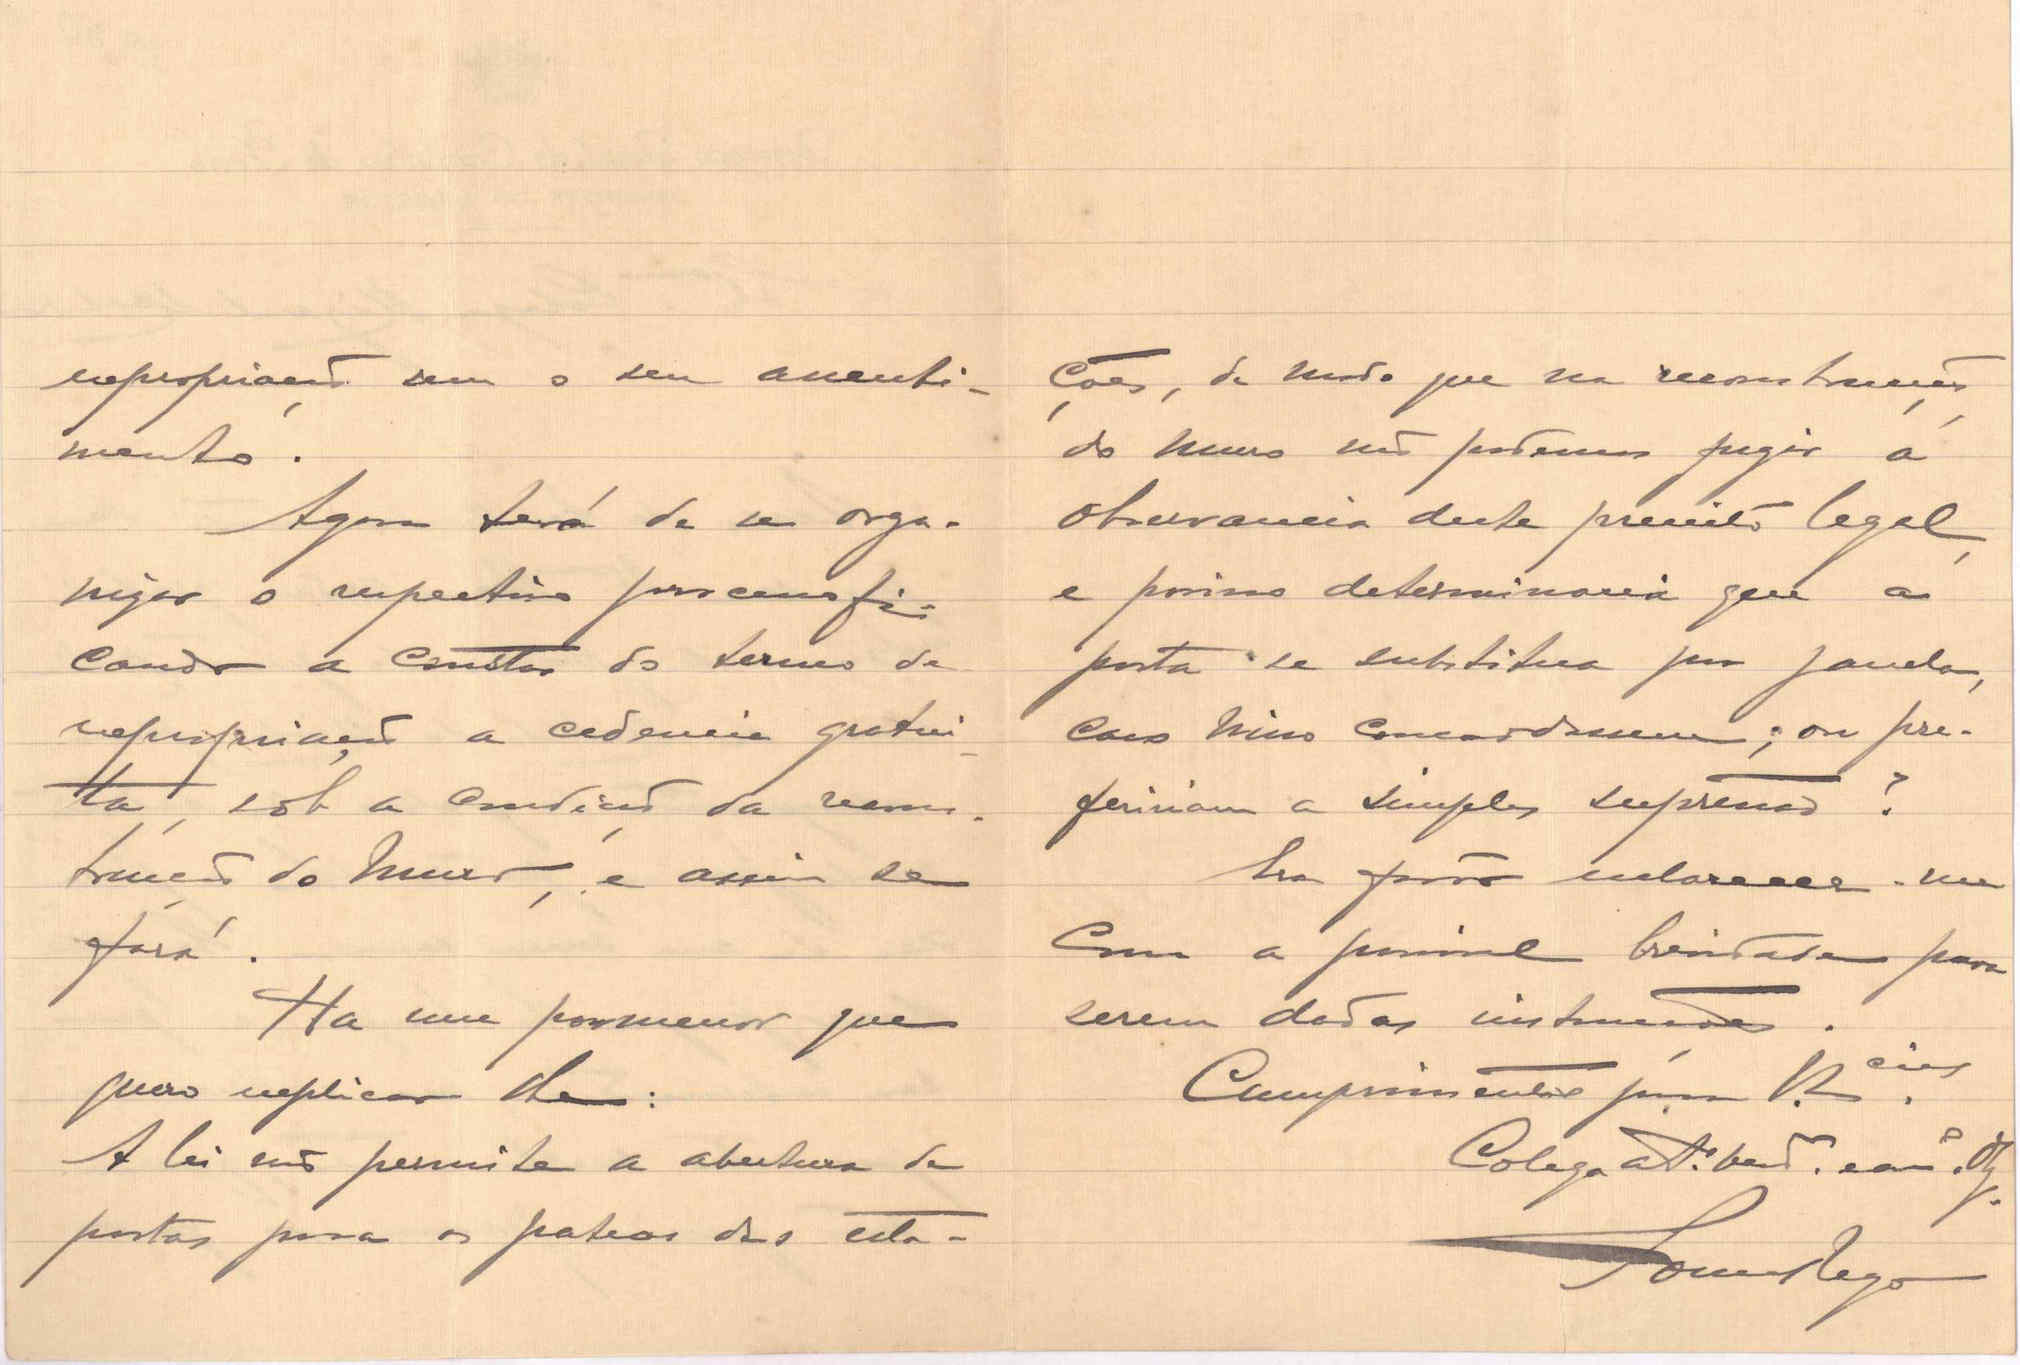 expropriação sem o seu assenti-
mento.
Agora terá de se orga-
nisar o respectivo processo fi-
cando a constar do termo de
expropriação a cedencia gratui-
ta, sob a condição da recons-
trução do muro, e assim se
fará.
Ha um pormenor que
quero explicar lhe:
A lei não permite a abertura de
portas para os pateos das esta-
ções, de modo que na reconstrução
do muro não podemos fugir á
observancia deste preceito legal,
e por isso determinaria que a
porta se substitua por janela,
caso nisso concordassem; ou pre-
feririam a simples supressão?
favor esclarecer-me
com a possivel brevidade para
serem dadas instruções.
Cumprimentos para V. Ex.cias
Colega att.º ven.or e am.º obg.
Sousa Rego